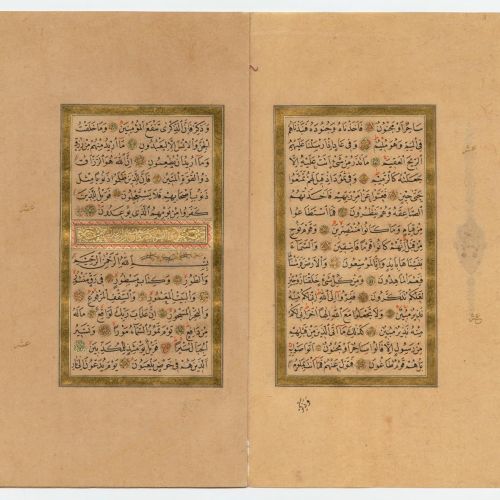 ساحر او مجنون فاخذناه وجنوده فنبذناهم
في اليم وهو مليم وفي عاد اذ ارسلنا عليهم
الريح العقيم ما تذر من شيء اتت عليه الا
جعلته كالرميم وفي ثمود اذ قيل لهم تمتعوا
حتى حين فعتوا عن امر ربهم فاخذتهم
الصاعقة وهم ينظرون فما استطاعوا
من قيام وما كانوا منتصرين وقوم نوح
من قبل انهم كانوا قوما فاسقين والسماء
بنيناها بايد وانا لموسعون والارض فرشناها
فنعم الماهدون ومن كل شيء خلقنا زوجين
لعلكم تذكرون ففروا الى الله اني لكم منه
نذير مبين ولا تجعلوا مع الله الها اخر اني لكم
منه نذير مبين كذلك ما اتى الذين من قبلهم
من رسول الا قالوا ساحر او مجنون اتواصوا به
بل هم قوم طاغون فتول عنهم فما انت بملوم
وذكر
وذكر فان الذكرى تنفع المؤمنين وما خلقت
الجن والانس الا ليعبدون ما اريد منهم من رزق
وما اريد ان يطعمون ان الله هو الرزاق
ذو القوة المتين فان للذين ظلموا ذنوبا مثل
ذنوب اصحابهم فلا يستعجلون فويل للذين
كفروا من يومهم الذي يوعدون
بسم الله الرحمن الرحيم
والطور وكتاب مسطور في رق منشور
والبيت المعمور والسقف المرفوع
والبحر المسجور ان عذاب ربك لواقع ما له
من دافع يوم تمور السماء مورا وتسير
الجبال سيرا فويل يومئذ للمكذبين
الذين هم في خوض يلعبون يوم يدعون الى نار